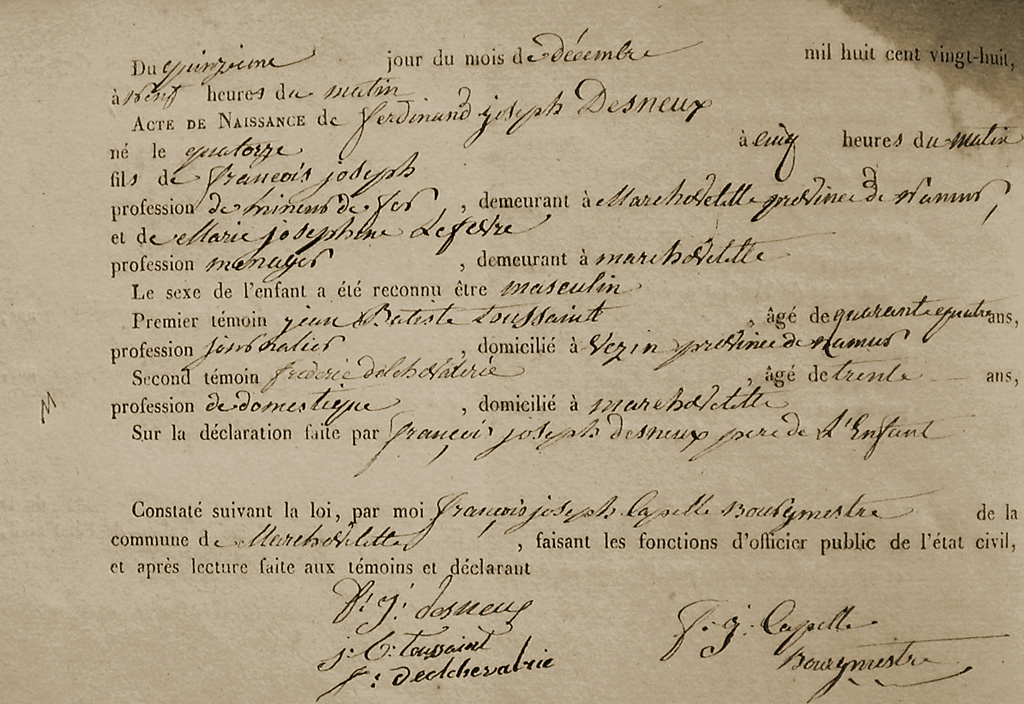 Du quinzieme jour du mois de décembre mil huit cent vingt-huit,
à neuf heures du matin
ACTE DE NAISSANCE de ferdinand joseph Desneux
né le quatorze à cinq heures du matin
fils de françois joseph
profession de mineur de fer, demeurant à Marchovelette province de Namur,
et de Marie josephine Lefevre
profession menager, demeurant à marchovelette
Le sexe de l'enfant a été reconnu être masculin
Premier témoin jean Batiste toussaint, âgé de quarante quatre ans,
profession journalier, domicilié à Vezin province de namur
Second témoin frederic delchevalerie, âgé de trente ans,
profession de domestique, domicilié à marchovelette
M
Sur la déclaration faite par françois joseph desneux pere de L'Enfant
Constaté suivant la loi, par moi françois joseph Capelle Bourgmestre de la
commune de Marchovelette, faisant les fonctions d'officier public de l'état civil,
et après lecture faite aux témoins et déclarant
f: j: desneux
j: b: toussaint
f: delchevalrie
f: j: Capelle
Bourgmestre